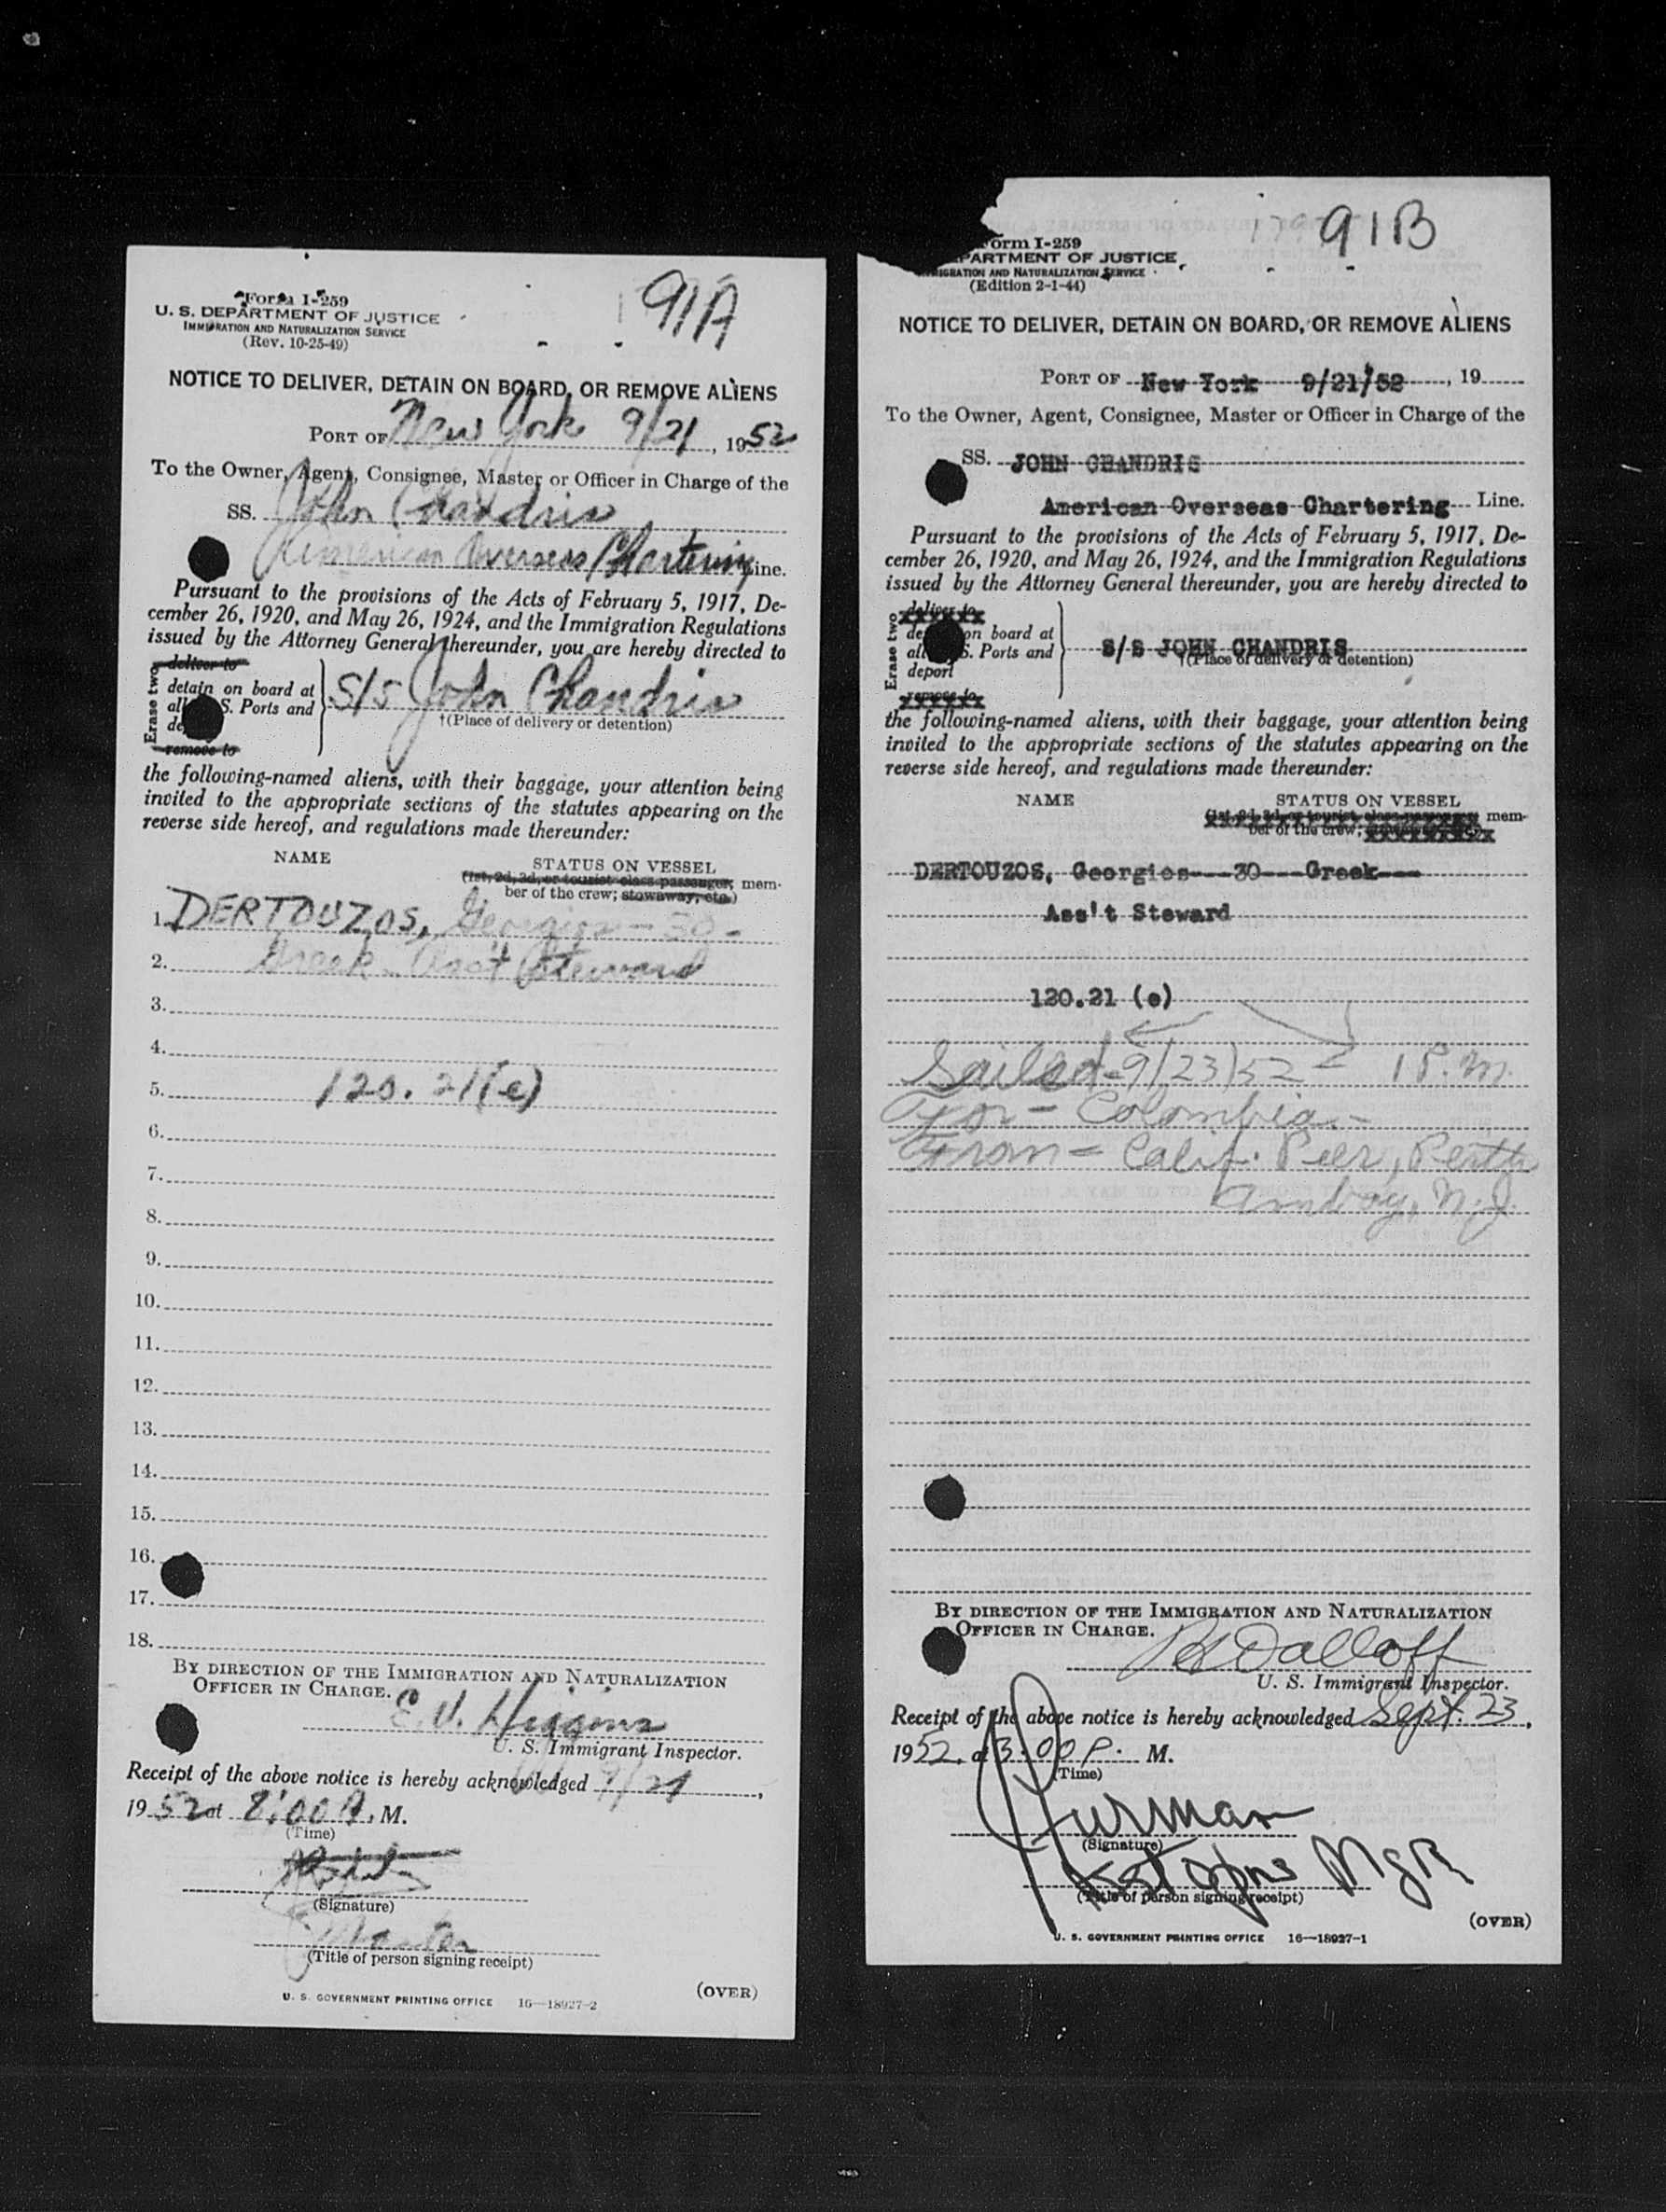 Form I-259
U. S. DEPARTMENT OF JUSTICE
IMMIGRATION AND NATURALIZATION SERVICE
(Rev. 10-25-49)
91A
NOTICE TO DELIVER, DETAIN ON BOARD, OR REMOVE ALIENS
PORT OF New York 9/21, 1952
To the Owner, Agent, Consignee, Master or Officer in Charge of the
SS. John Chandris
American Overseas Chartering Line.
Pursuant to the provisions of the Acts of February 5, 1917, De-
cember 26, 1920, and May 26, 1924, and the Immigration Regulations
issued by the Attorney General thereunder, you are hereby directed to
Erase two
deliver to
detain on board at
all S. Ports and
de
remove to
S/S John Chandris
†(Place of delivery or detention)
the following-named aliens, with their baggage, your attention being
invited to the appropriate sections of the statutes appearing on the
reverse side hereof, and regulations made thereunder:
NAME
STATUS ON VESSEL
(1st, 2d, 3d, or tourist class passenger; mem-
ber of the crew; stowaway, etc.)
1. DERTOUZOS, Georgios - 30 -
2. Greek Ass't Steward
3.
4.
5. 120.21(e)
6.
7.
8.
9.
10.
11.
12.
13.
14.
15.
16.
17.
18.
BY DIRECTION OF THE IMMIGRATION AND NATURALIZATION
OFFICER IN CHARGE.
E. V. Higgins
U. S. Immigrant Inspector.
Receipt of the above notice is hereby acknowledged 9/21,
1952 at 8:00 A. M.
(Time)
(Signature)
Master
(Title of person signing receipt)
(OVER)
U. S. GOVERNMENT PRINTING OFFICE 16—18927-2
91B
Form I-259
PARTMENT OF JUSTICE
IGRATION AND NATURALIZATION SERVICE
(Edition 2-1-44)
NOTICE TO DELIVER, DETAIN ON BOARD, OR REMOVE ALIENS
PORT OF New York 9/21/52, 19
To the Owner, Agent, Consignee, Master or Officer in Charge of the
SS. JOHN CHANDRIS
American Overseas Chartering Line.
Pursuant to the provisions of the Acts of February 5, 1917, De-
cember 26, 1920, and May 26, 1924, and the Immigration Regulations
issued by the Attorney General thereunder, you are hereby directed to
Erase two
deliver to
de on board at
all S. Ports and
deport
remove to
S/S JOHN CHANDRIS
†(Place of delivery or detention)
the following-named aliens, with their baggage, your attention being
invited to the appropriate sections of the statutes appearing on the
reverse side hereof, and regulations made thereunder:
NAME
STATUS ON VESSEL
(1st, 2d, 3d, or tourist class passenger; mem-
ber of the crew;
DERTOUZOS, Georgios---30---Greek---
Ass't Steward
120.21 (e)
Sailed - 9/23/52 - 1 P.M.
For - Colombia -
From - Calif. Pier, Perth
Amboy, N.J.
BY DIRECTION OF THE IMMIGRATION AND NATURALIZATION
OFFICER IN CHARGE.
U. S. Immigrant Inspector.
Receipt of the above notice is hereby acknowledged Sept. 23,
1952, at 3:00 P. M.
(Time)
(Signature)
Mgr
(Title of person signing receipt)
(OVER)
U. S. GOVERNMENT PRINTING OFFICE 16—18927-1